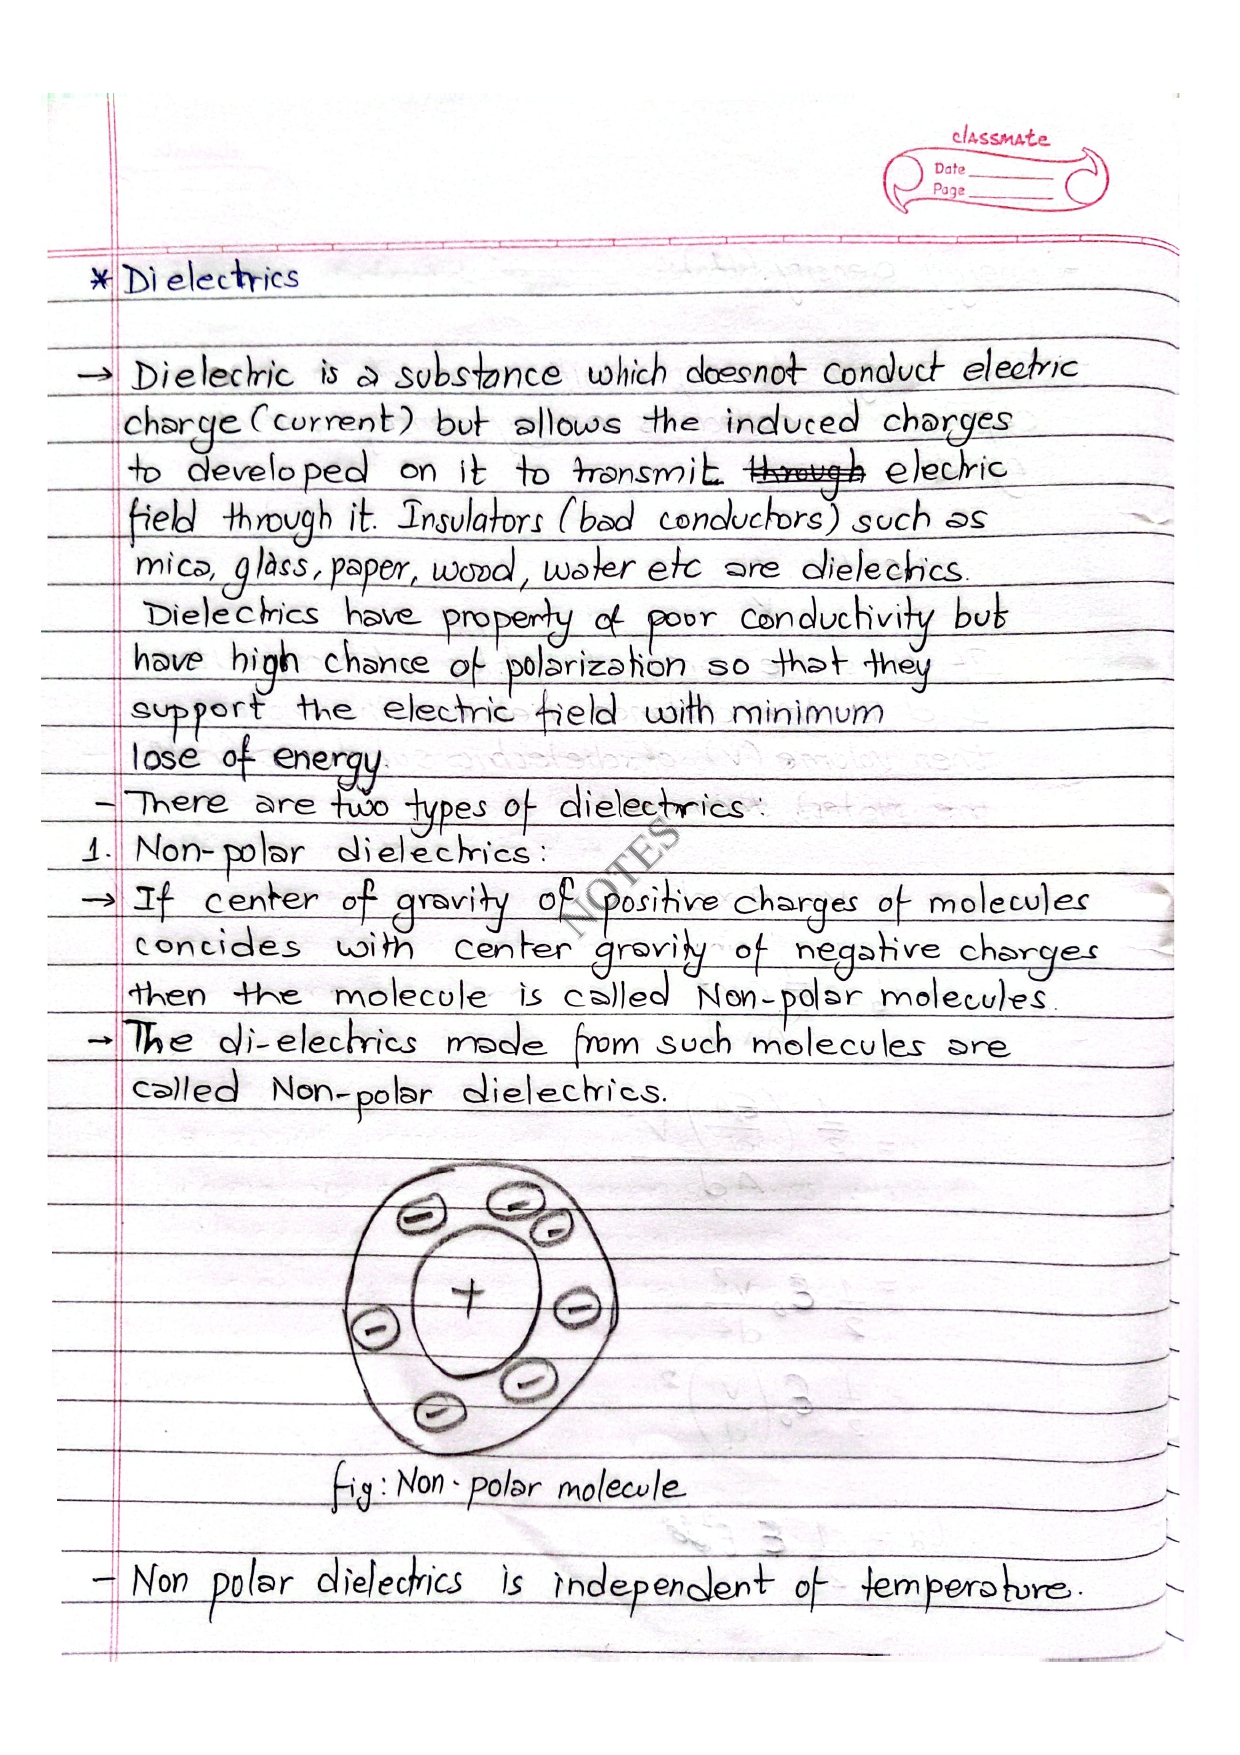 classmate
Date
Page
* Dielectrics
→ Dielectric is a substance which doesnot conduct electric
charge (current) but allows the induced charges
to developed on it to transmit through electric
field through it. Insulators (bad conductors) such as
mica, glass, paper, wood, water etc are dielectrics.
Dielectrics have property of poor conductivity but
have high chance of polarization so that they
support the electric field with minimum
lose of energy.
- There are two types of dielectrics:
1. Non-polar dielectrics:
→ If center of gravity of positive charges of molecules
concides with center gravity of negative charges
then the molecule is called Non-polar molecules.
→ The di-electrics made from such molecules are
called Non-polar dielectrics.
NOTES
+
fig: Non-polar molecule
- Non polar dielectrics is independent of temperature.